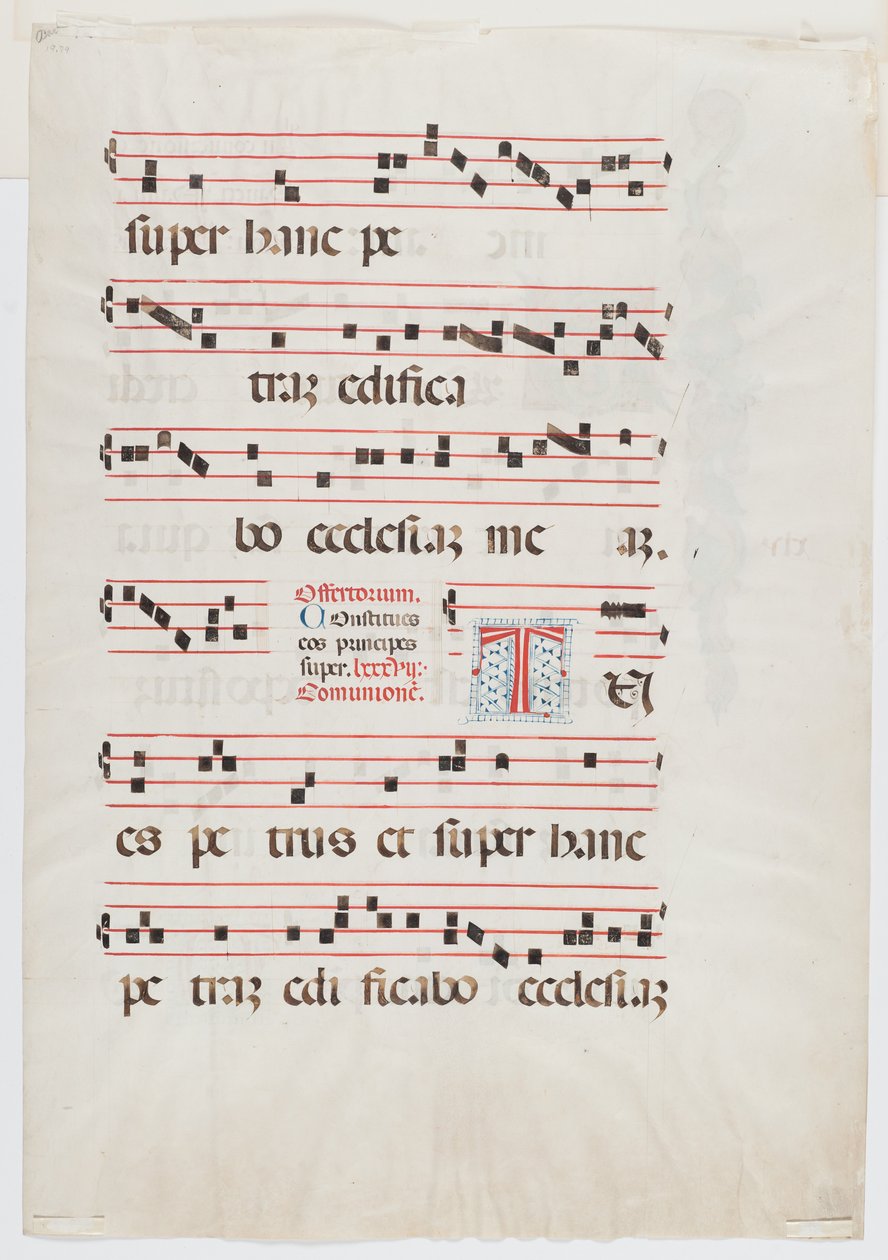 super hanc pe
traz edifica
bo ecclesiaz me az.
Offertorium.
Constitues
eos principes
super. lxxxvij:
Comunione.
TU
es pe trus et super hanc
pe traz edi ficabo ecclesiaz